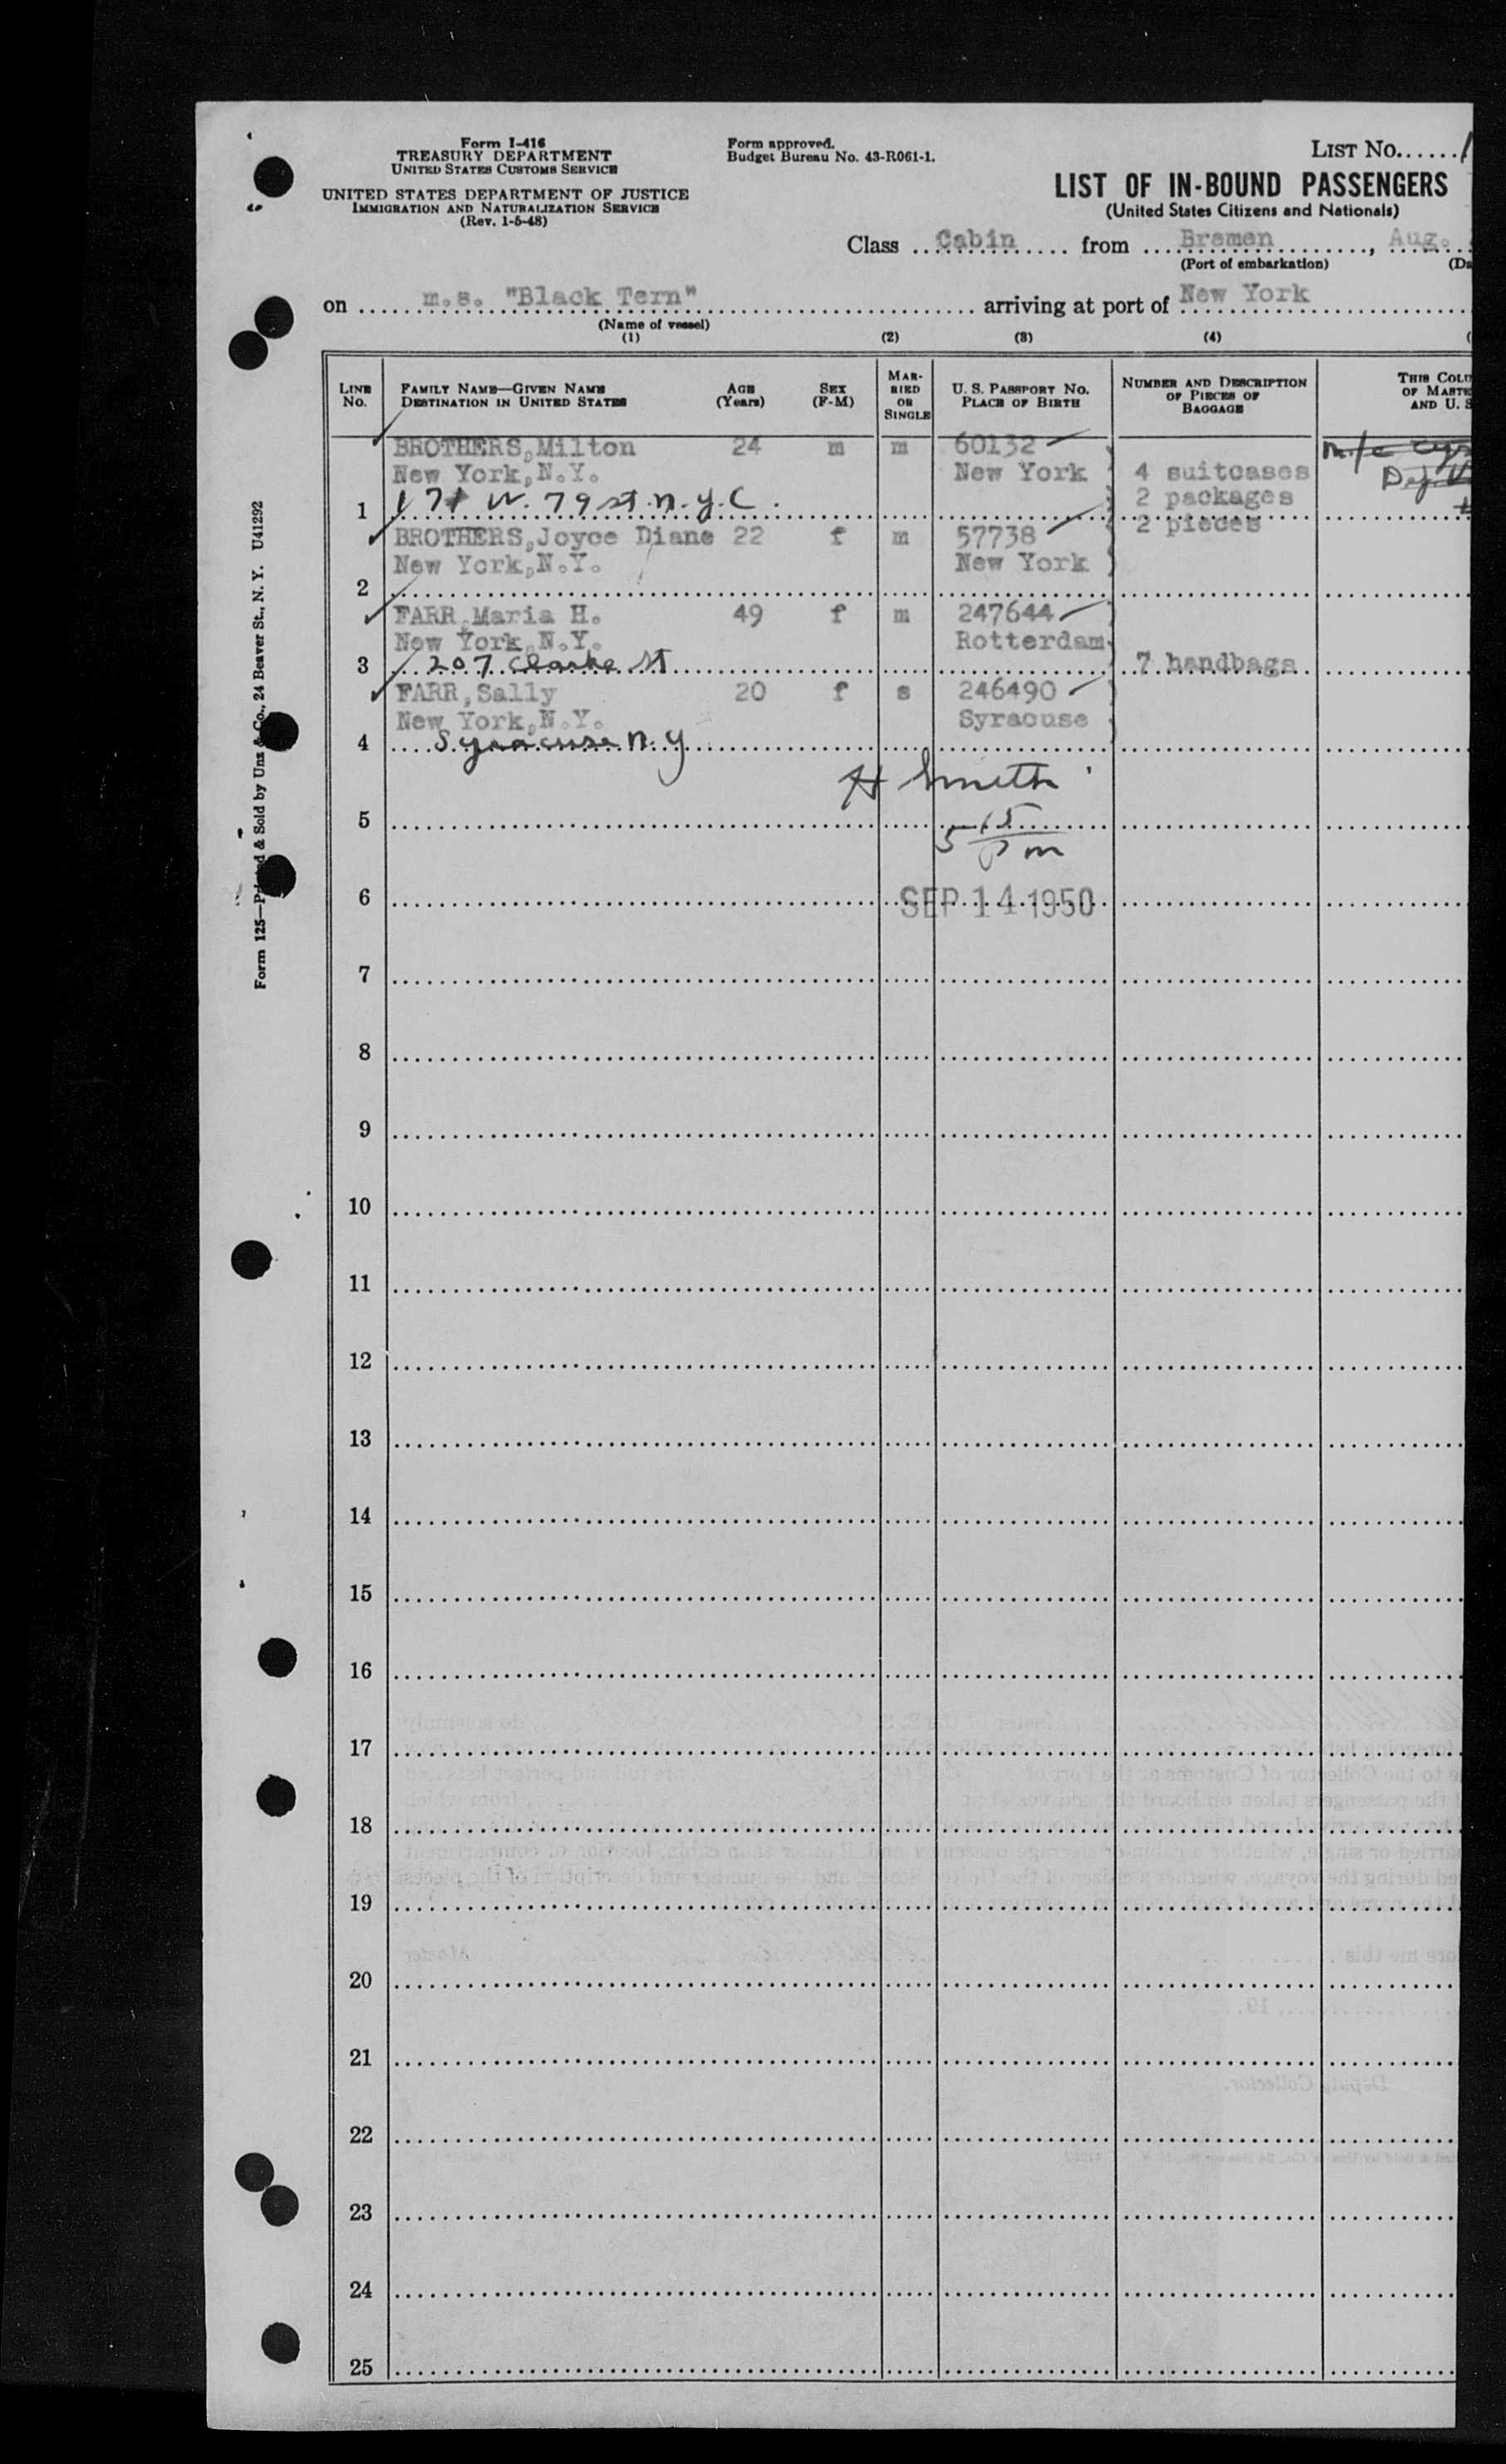 Form I-416
TREASURY DEPARTMENT
UNITED STATES CUSTOMS SERVICE
UNITED STATES DEPARTMENT OF JUSTICE
IMMIGRATION AND NATURALIZATION SERVICE
(Rev. 1-5-48)
Form approved.
Budget Bureau No. 43-R061-1.
LIST NO......1
LIST OF IN-BOUND PASSENGERS
(United States Citizens and Nationals)
Class Cabin from Bremen, Aug.
(Port of embarkation)
on m.s. "Black Tern" arriving at port of New York
(Name of vessel)
(1) (2) (3) (4)
LINE NO. FAMILY NAME—GIVEN NAME DESTINATION IN UNITED STATES AGE (Years) SEX (F-M) MARRIED OR SINGLE U. S. PASSPORT NO. PLACE OF BIRTH NUMBER AND DESCRIPTION OF PIECES OF BAGGAGE THIS COLU OF MASTE AND U. S
BROTHERS,Milton 24 m m 60132
New York,N.Y. New York 4 suitcases
1 171 W. 79 st. n.y.C. 2 packages
2 pieces
BROTHERS,Joyce Diane 22 f m 57738
New York,N.Y. New York
2
FARR,Maria H. 49 f m 247644
New York,N.Y. Rotterdam
3 207 Clarke St 7 handbags
FARR,Sally 20 f s 246490
New York,N.Y. Syracuse
4 Syracuse n.y
H Smith
5
5 15 pm
6 SEP 14 1950
7
8
9
10
11
12
13
14
15
16
17
18
19
20
21
22
23
24
25
Form 125—Printed & Sold by Unz & Co., 24 Beaver St., N. Y. U41292